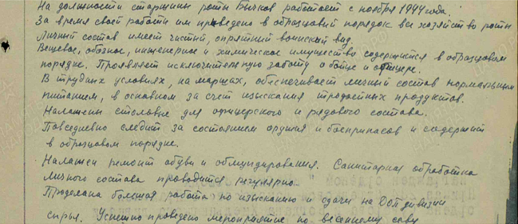 На должности старшины роты Быков работает с ноября 1944 года.
За время своей работы им проведено в образцовый порядок все хозяйство роты
Личный состав имеет чистый, опрятный воинский вид.
Вещевое, обозное, инженерное и химическое имущество содержится в образцовом
порядке. Проявляет исключительную заботу о бойце и офицере.
В трудных условиях, на маршах, обеспечивает личный состав нормальным
питанием, в основном за счет изыскания трофейных продуктов.
Налажены столовые для офицерского и рядового состава.
Повседневно следит за состоянием оружия и боеприпасов и содержит
в образцовом порядке.
Налажен ремонт обуви и обмундирования. Санитарная обработка
личного состава проводится регулярно.
Проделана большая работа по изысканию и сдачи на ДОП дивизии
сырья. Успешно проведено мероприятие по весеннему севу